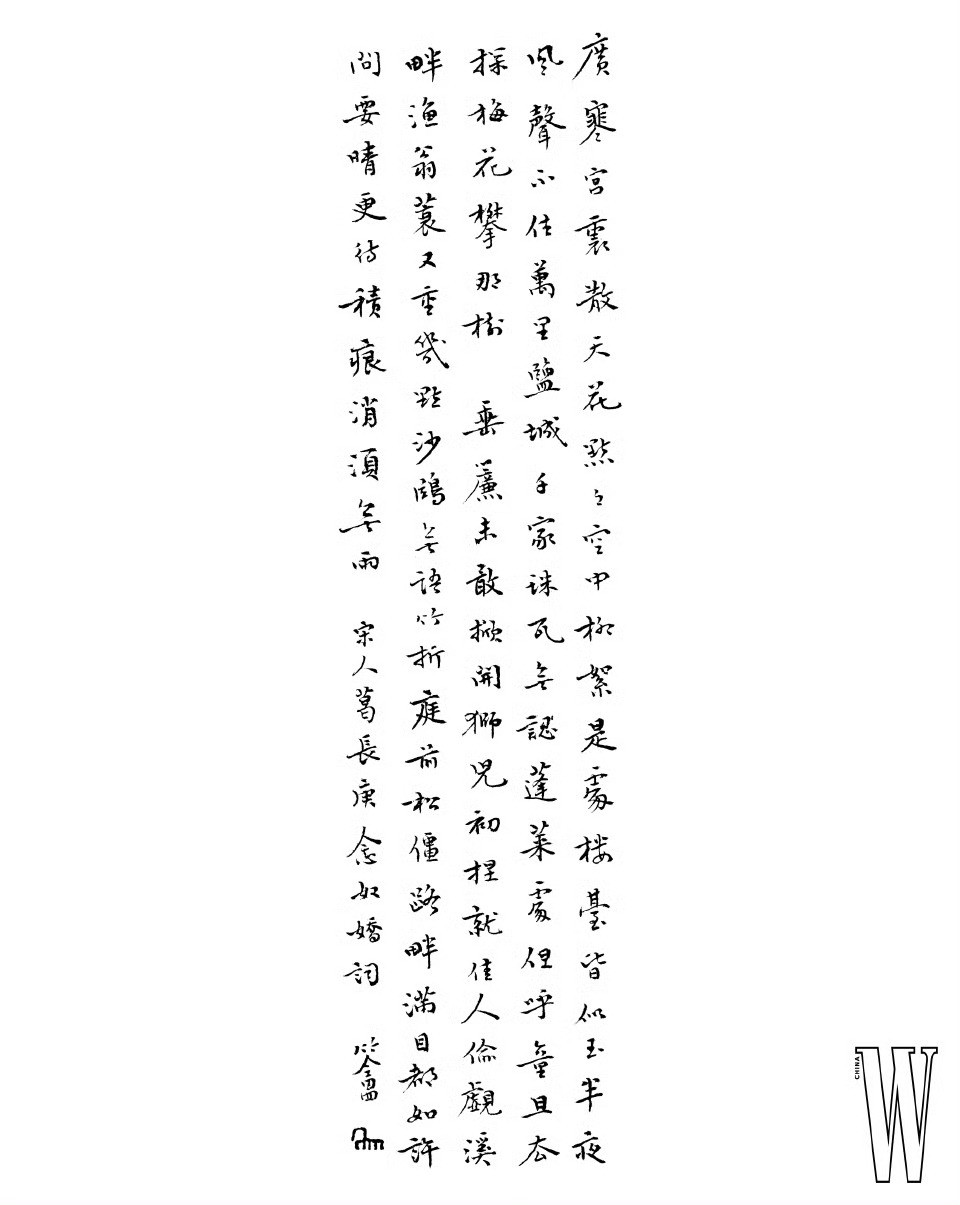 廣寒宮裏散天花點々空中柳絮是處楼臺皆似玉半夜
風聲不住萬里鹽城千家珠瓦無認蓬萊處但呼童且去
探梅花攀那樹 垂簾未敢掀開獅兒初捏就佳人偷覷溪
畔漁翁蓑又重幾點沙鷗無語竹折庭前松僵路畔滿目都如許
問要晴更待積痕消須無雨 宋人葛長庚念奴嬌詞
W CHINA